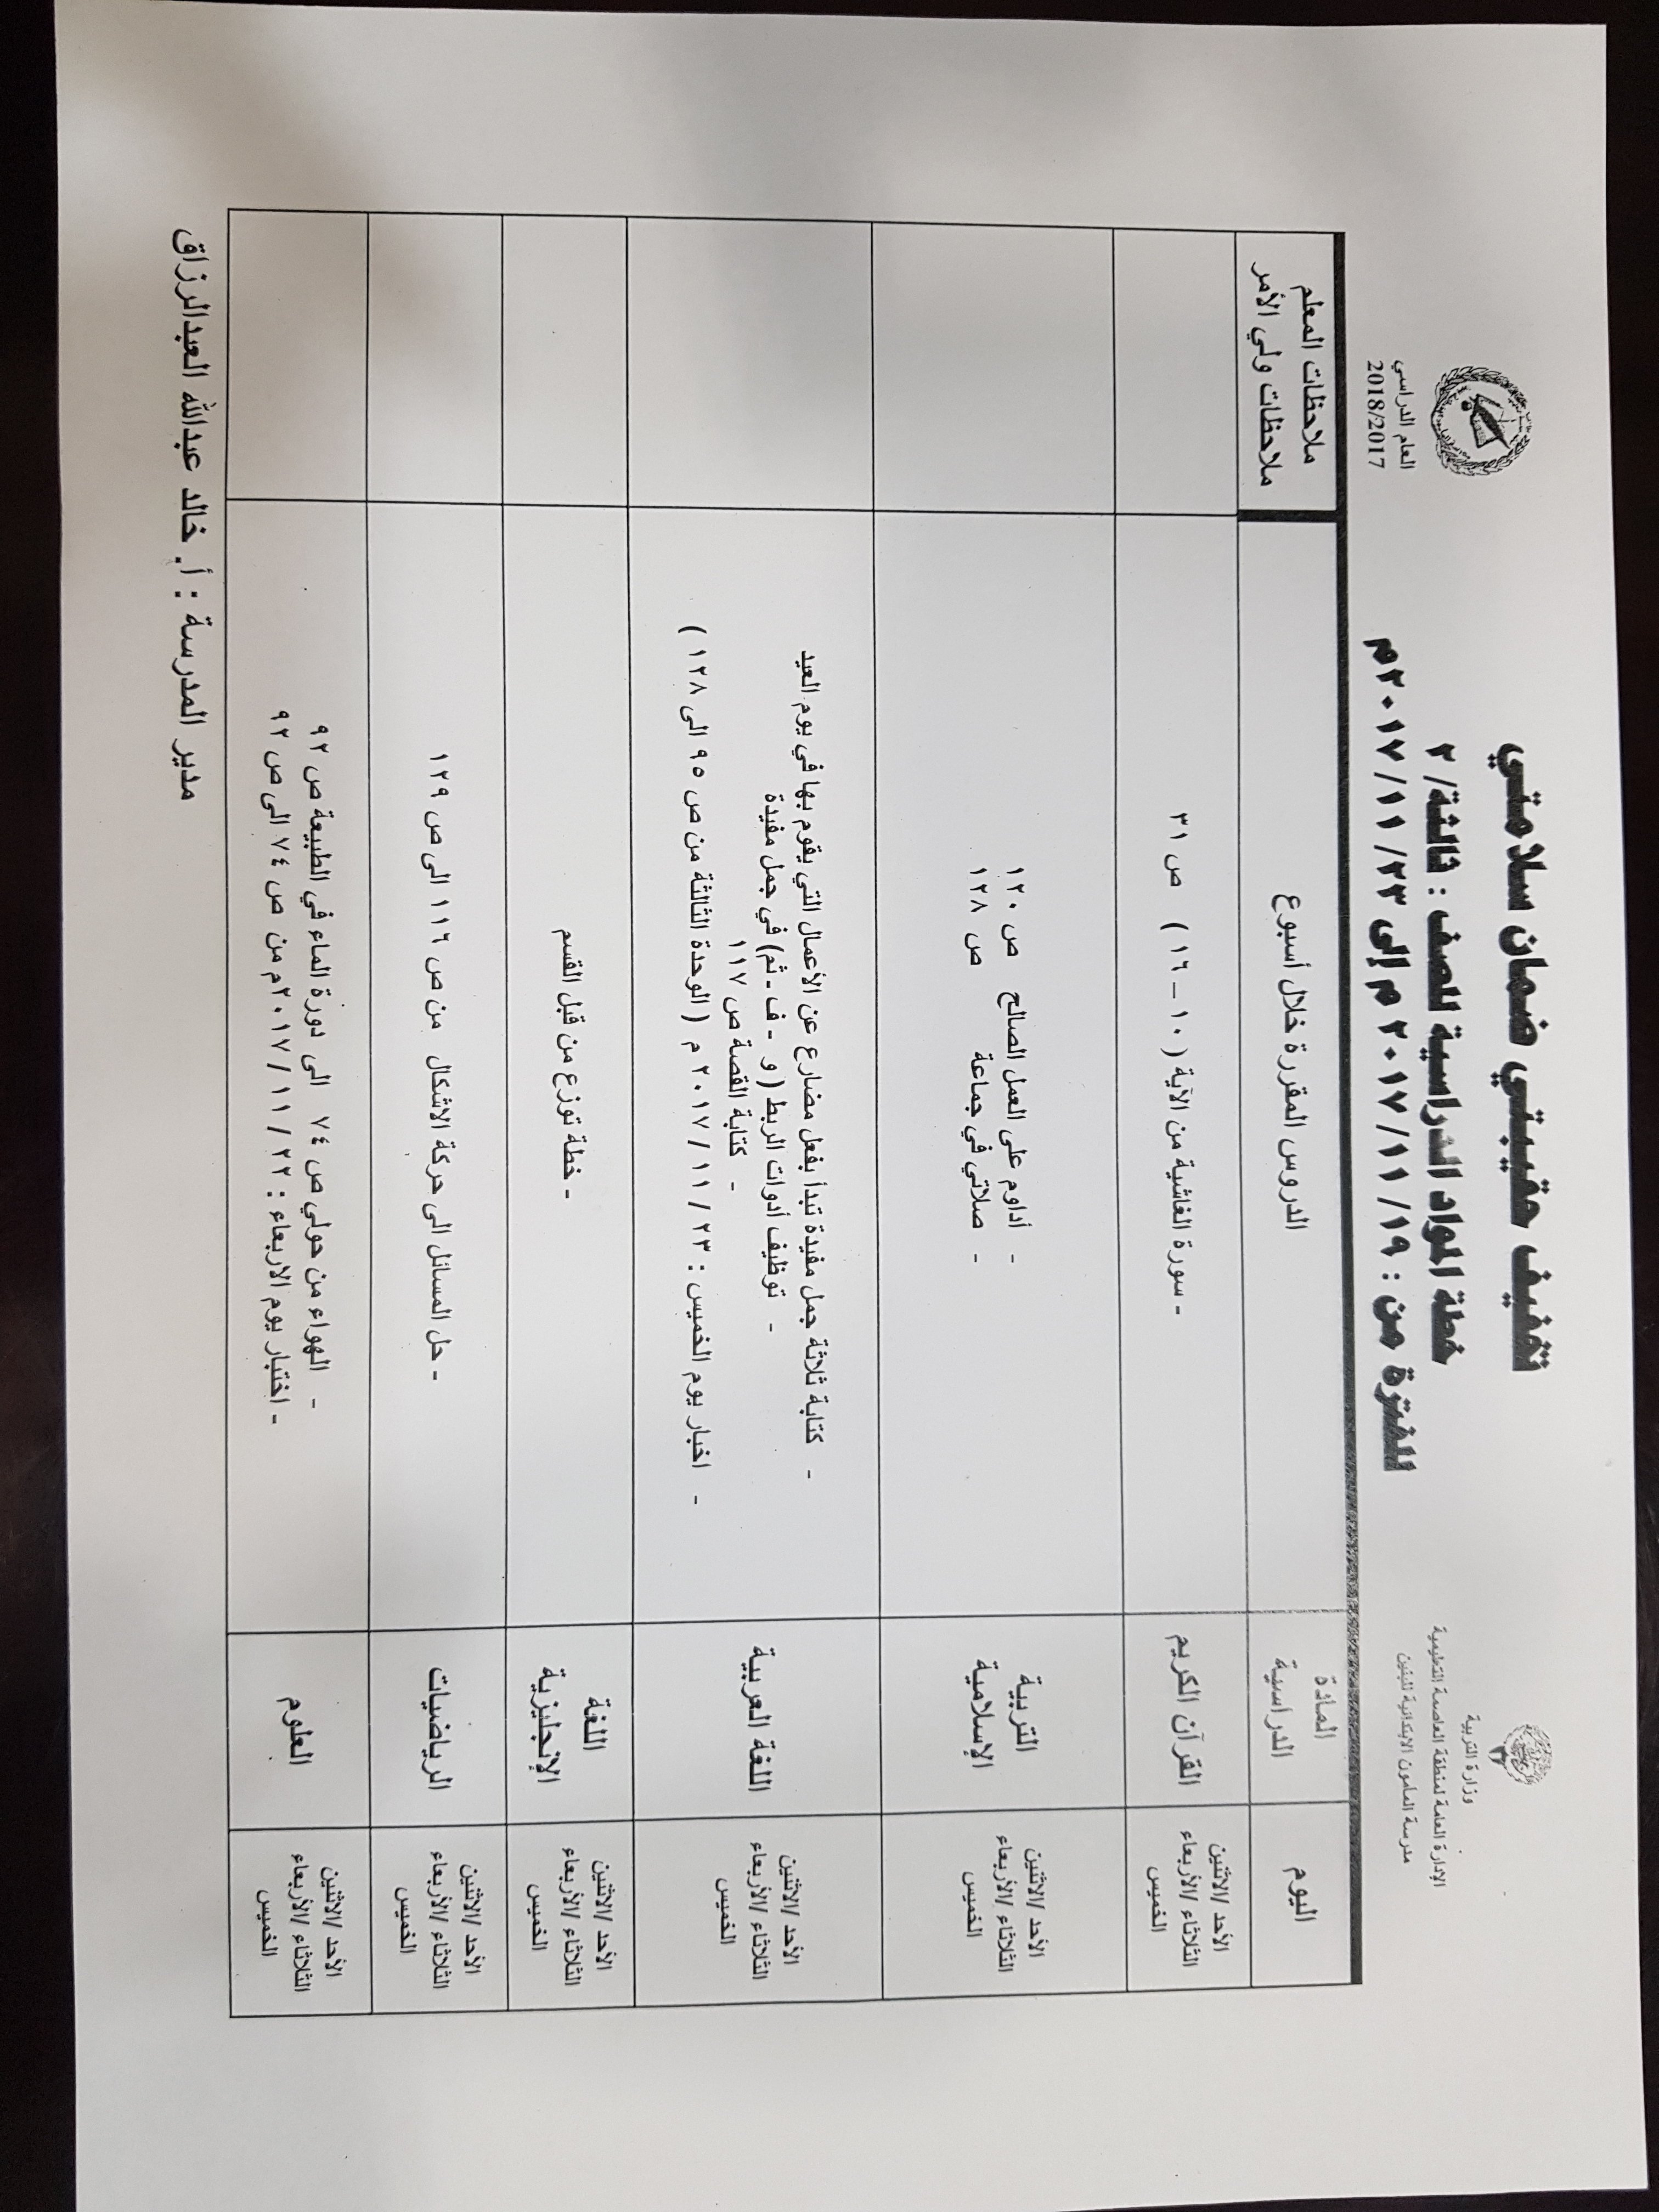 وزارة التربية
الإدارة العامة لمنطقة العاصمة التعليمية
مدرسة المأمون الابتدائية للبنين
تخفيف حقيبتي ضمان سلامتي
خطة المواد الدراسية للصف : ثالثة/ ٢
للفترة من : ١٩/ ١١/ ٢٠١٧ م إلى ٢٣/ ١١/ ٢٠١٧م
العام الدراسي
2018/2017
اليوم
المادة
الدراسية
الدروس المقررة خلال أسبوع
ملاحظات المعلم
ملاحظات ولي الأمر
الأحد /الاثنين
الثلاثاء /الأربعاء
الخميس
القرآن الكريم
- سورة الغاشية من الآية ( ١٠ – ١٦ ) ص ٣١
الأحد /الاثنين
الثلاثاء /الأربعاء
الخميس
التربية
الإسلامية
- أداوم على العمل الصالح ص ١٢٠
- صلاتي في جماعة ص ١٢٨
الأحد /الاثنين
الثلاثاء /الأربعاء
الخميس
اللغة العربية
- كتابة ثلاثة جمل مفيدة تبدأ بفعل مضارع عن الأعمال التي يقوم بها في يوم العيد
- توظيف أدوات الربط ( و - ف - ثم) في جمل مفيدة
- كتابة القصة ص ١١٧
- اخبار يوم الخميس : ٢٣ / ١١ / ٢٠١٧ م ( الوحدة الثالثة من ص ٩٥ الى ١٢٨ )
الأحد /الاثنين
الثلاثاء /الأربعاء
الخميس
اللغة
الإنجليزية
- خطة توزع من قبل القسم
الأحد /الاثنين
الثلاثاء /الأربعاء
الخميس
الرياضيات
- حل المسائل الى حركة الاشكال من ص ١١٦ الى ص ١٢٩
الأحد /الاثنين
الثلاثاء /الأربعاء
الخميس
العلوم
- الهواء من حولي ص ٧٤ الى دورة الماء في الطبيعة ص ٩٢
- اختبار يوم الاربعاء : ٢٢ / ١١ / ٢٠١٧م من ص ٧٤ الى ص ٩٢
مدير المدرسة : أ. خالد عبدالله العبدالرزاق